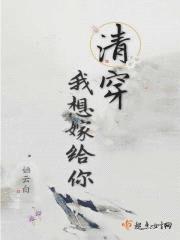 清穿
我想嫁给你
仙云白
起点中文网